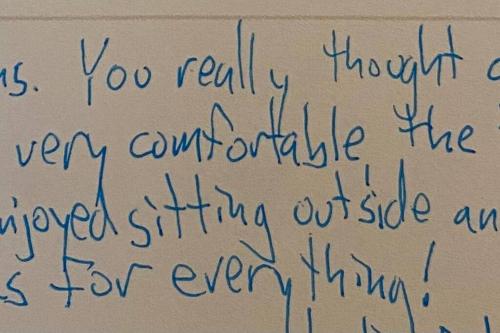 ns. You really thought
very comfortable, the
njoyed sitting outside an
s for everything!